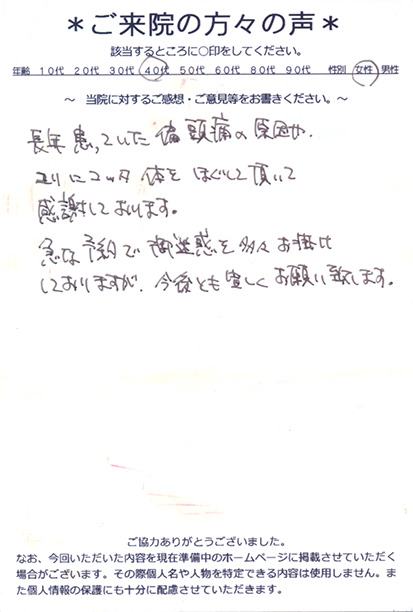 ＊ご来院の方々の声＊
該当するところに○印をしてください。
年齢 10代 20代 30代 40代 50代 60代 70代 80代 90代 性別 女性 男性
～ 当院に対するご感想・ご意見等をお書きください。～
長年患っていた偏頭痛の原因や、
コリにコッタ体をほぐして頂いて
感謝しております。
急な予約で御迷惑を多々お掛け
しておりますが、今後とも宜しくお願い致します。
ご協力ありがとうございました。
なお、今回いただいた内容を現在準中のホームページに掲載させていただく
場合がございます。その際個人名や人物を特定できる内容は使用しません。ま
た個人情報の保護にも十分に配慮させていただきます。